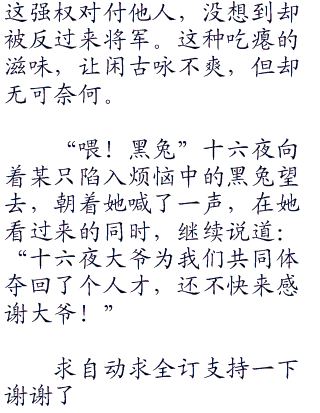 这强权对付他人，没想到却
被反过来将军。这种吃瘪的
滋味，让闲古咏不爽，但却
无可奈何。
“喂！黑兔”十六夜向
着某只陷入烦恼中的黑兔望
去，朝着她喊了一声，在她
看过来的同时，继续说道：
“十六夜大爷为我们共同体
夺回了个人才，还不快来感
谢大爷！”
求自动求全订支持一下
谢谢了